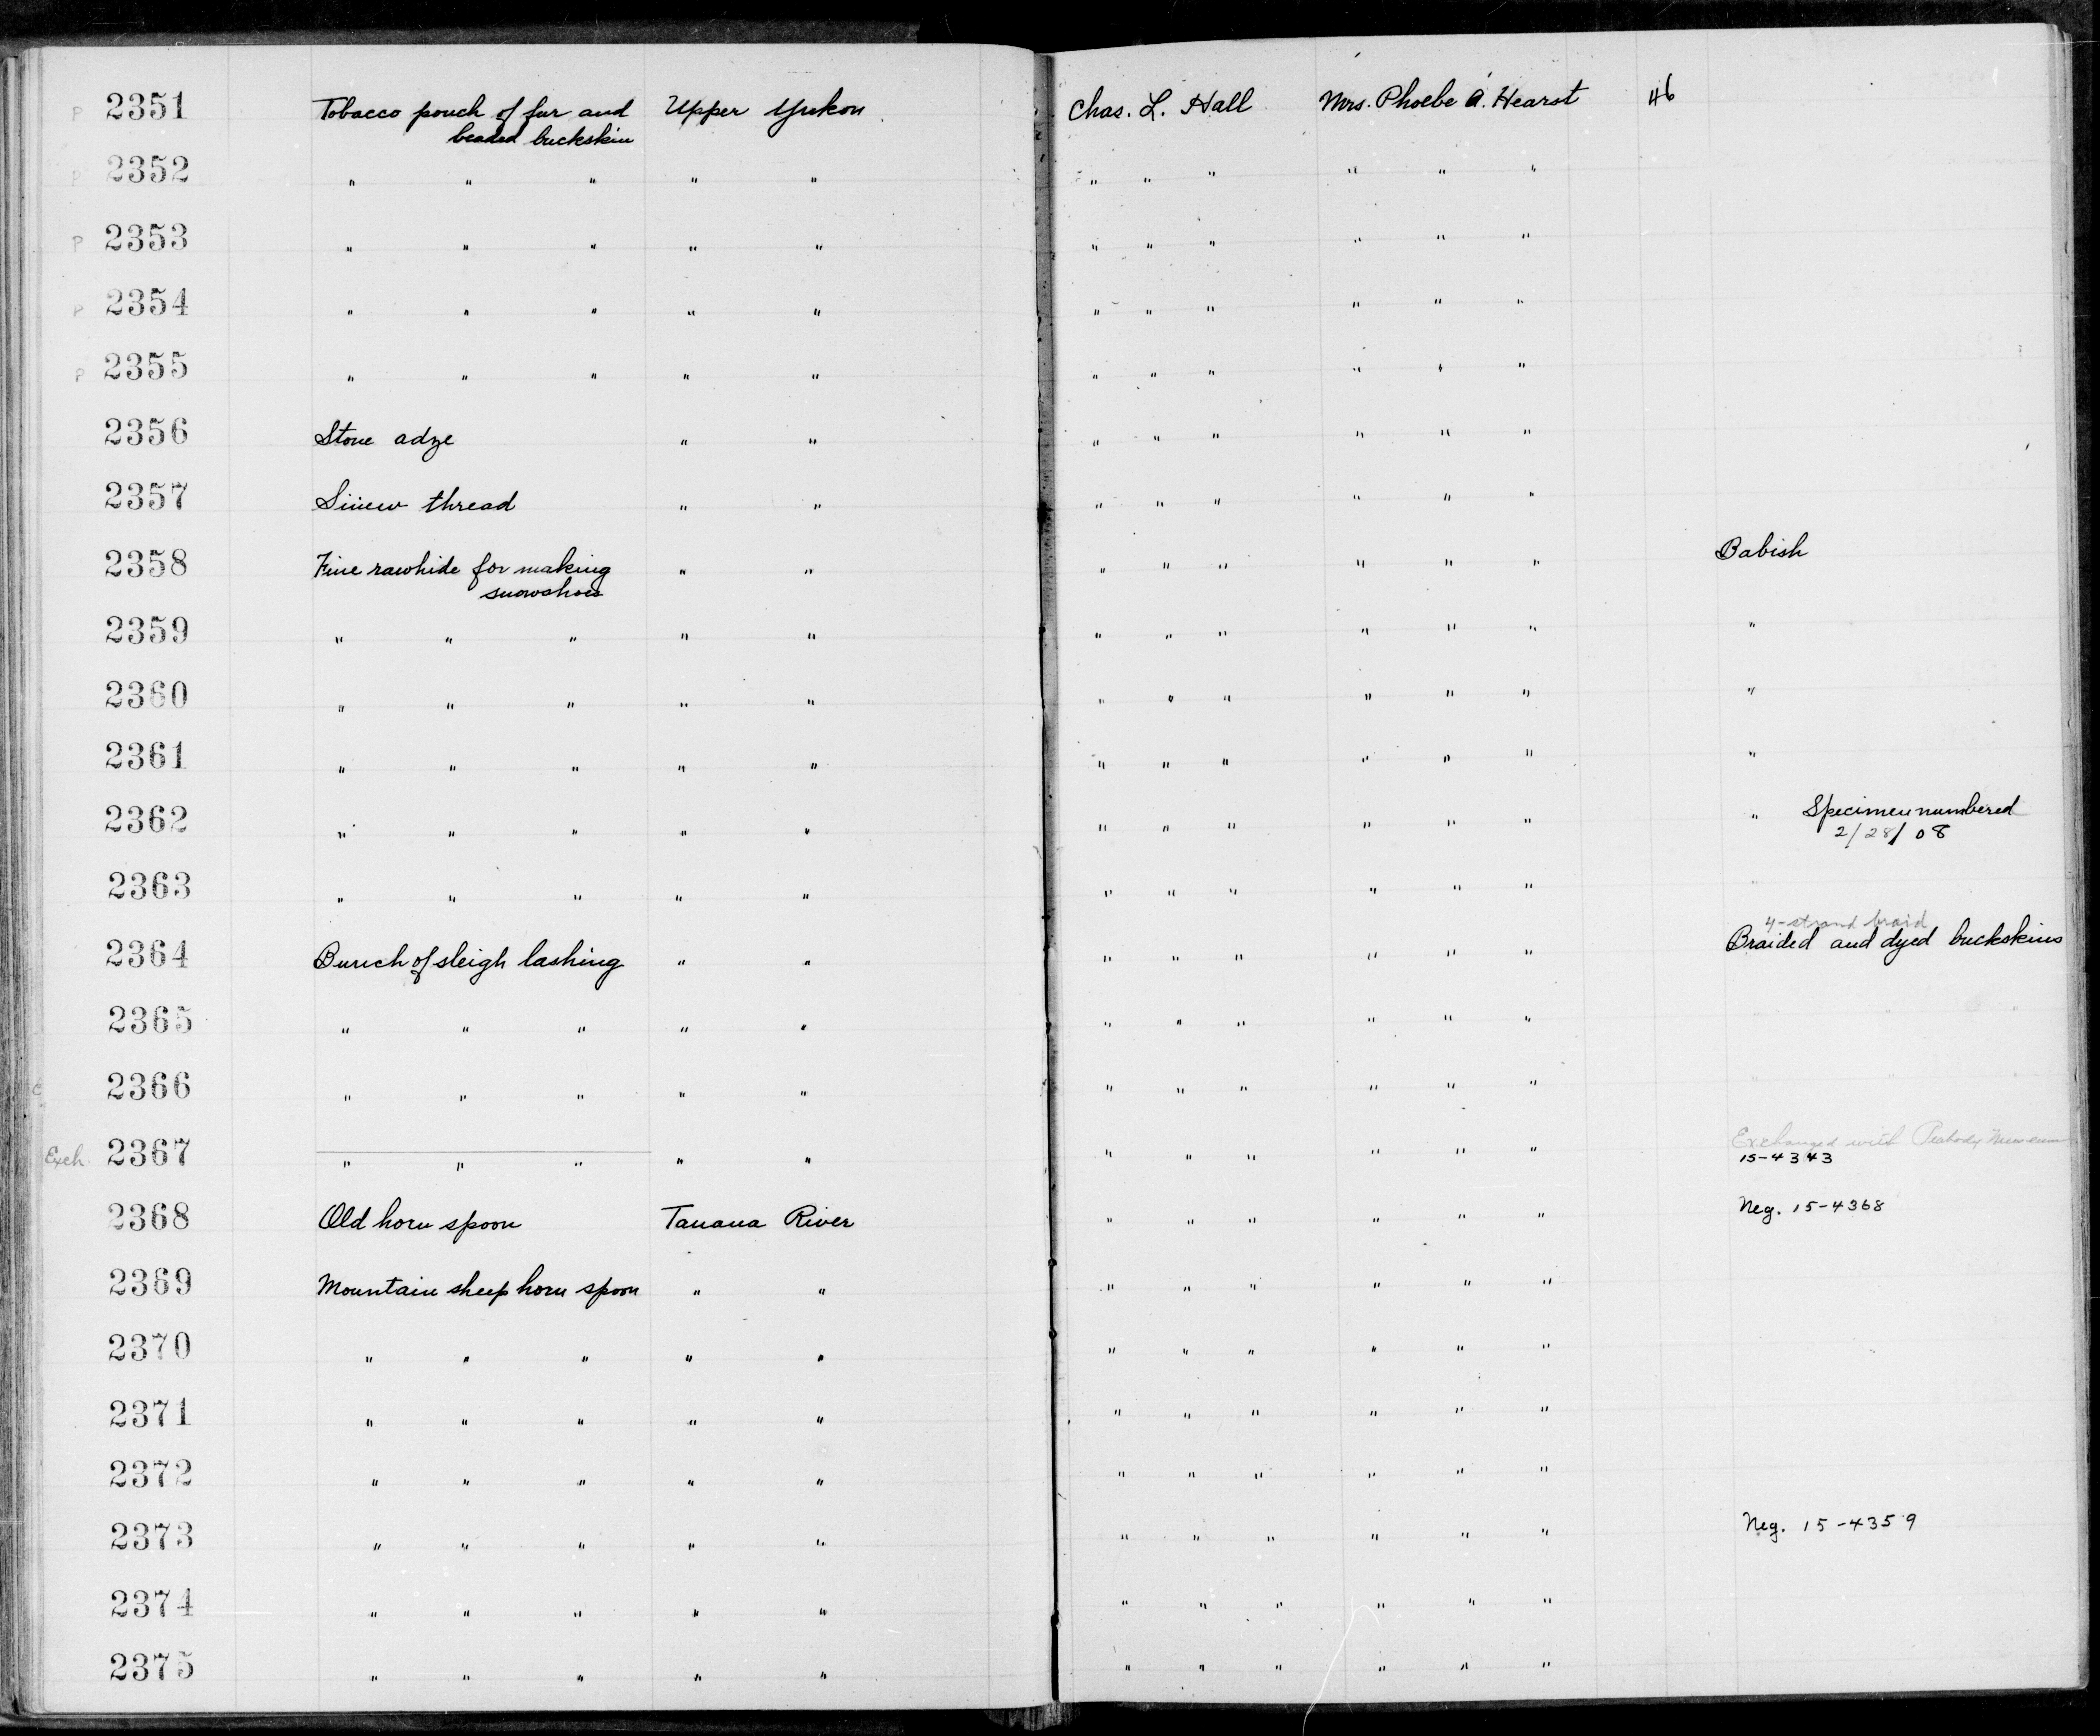 P 2351 Tobacco pouch of fur and Upper Yukon Chas. L. Hall Mrs. Phoebe A. Hearst 46
beaded buckskin
P 2352 " " " " " " " " " " "
P 2353 " " " " " " " " " " "
P 2354 " " " " " " " " " " "
P 2355 " " " " " " " " " " "
2356 Stone adze " " " " " " " "
2357 Sinew thread " " " " " " " "
2358 Fine rawhide for making " " " " " " " " Babish
snowshoes
2359 " " " " " " " " " " " "
2360 " " " " " " " " " " " "
2361 " " " " " " " " " " " "
2362 " " " " " " " " " " " " Specimen numbered
2/28/08
2363 " " " " " " " " " " " "
4-strand braid
2364 Bunch of sleigh lashing " " " " " " " " Braided and dyed buckskins
2365 " " " " " " " " " " " " " "
2366 " " " " " " " " " " " " " "
Exch. 2367 " " " " " " " " " " " Exchanged with Peabody Museum
15-4343
2368 Old horn spoon Tanana River " " " " " " Neg. 15-4368
2369 Mountain sheep horn spoon " " " " " " " "
2370 " " " " " " " " " " "
2371 " " " " " " " " " " "
2372 " " " " " " " " " " "
2373 " " " " " " " " " " " Neg. 15-4359
2374 " " " " " " " " " " "
2375 " " " " " " " " " " "